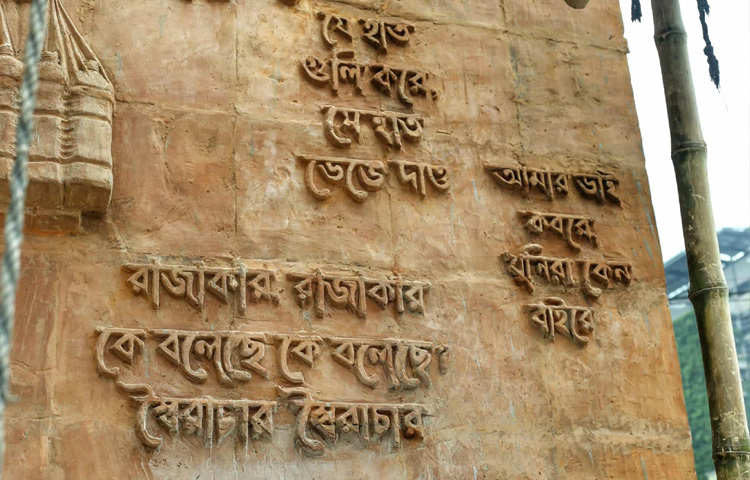 যে হাত
গুলি করে,
সে হাত
ভেঙে দাও
আমার ভাই
কবরে,
খুনিরা কেন
বাইরে
রাজাকার রাজাকার
কে বলেছে কে বলেছে
স্বৈরাচার স্বৈরাচার